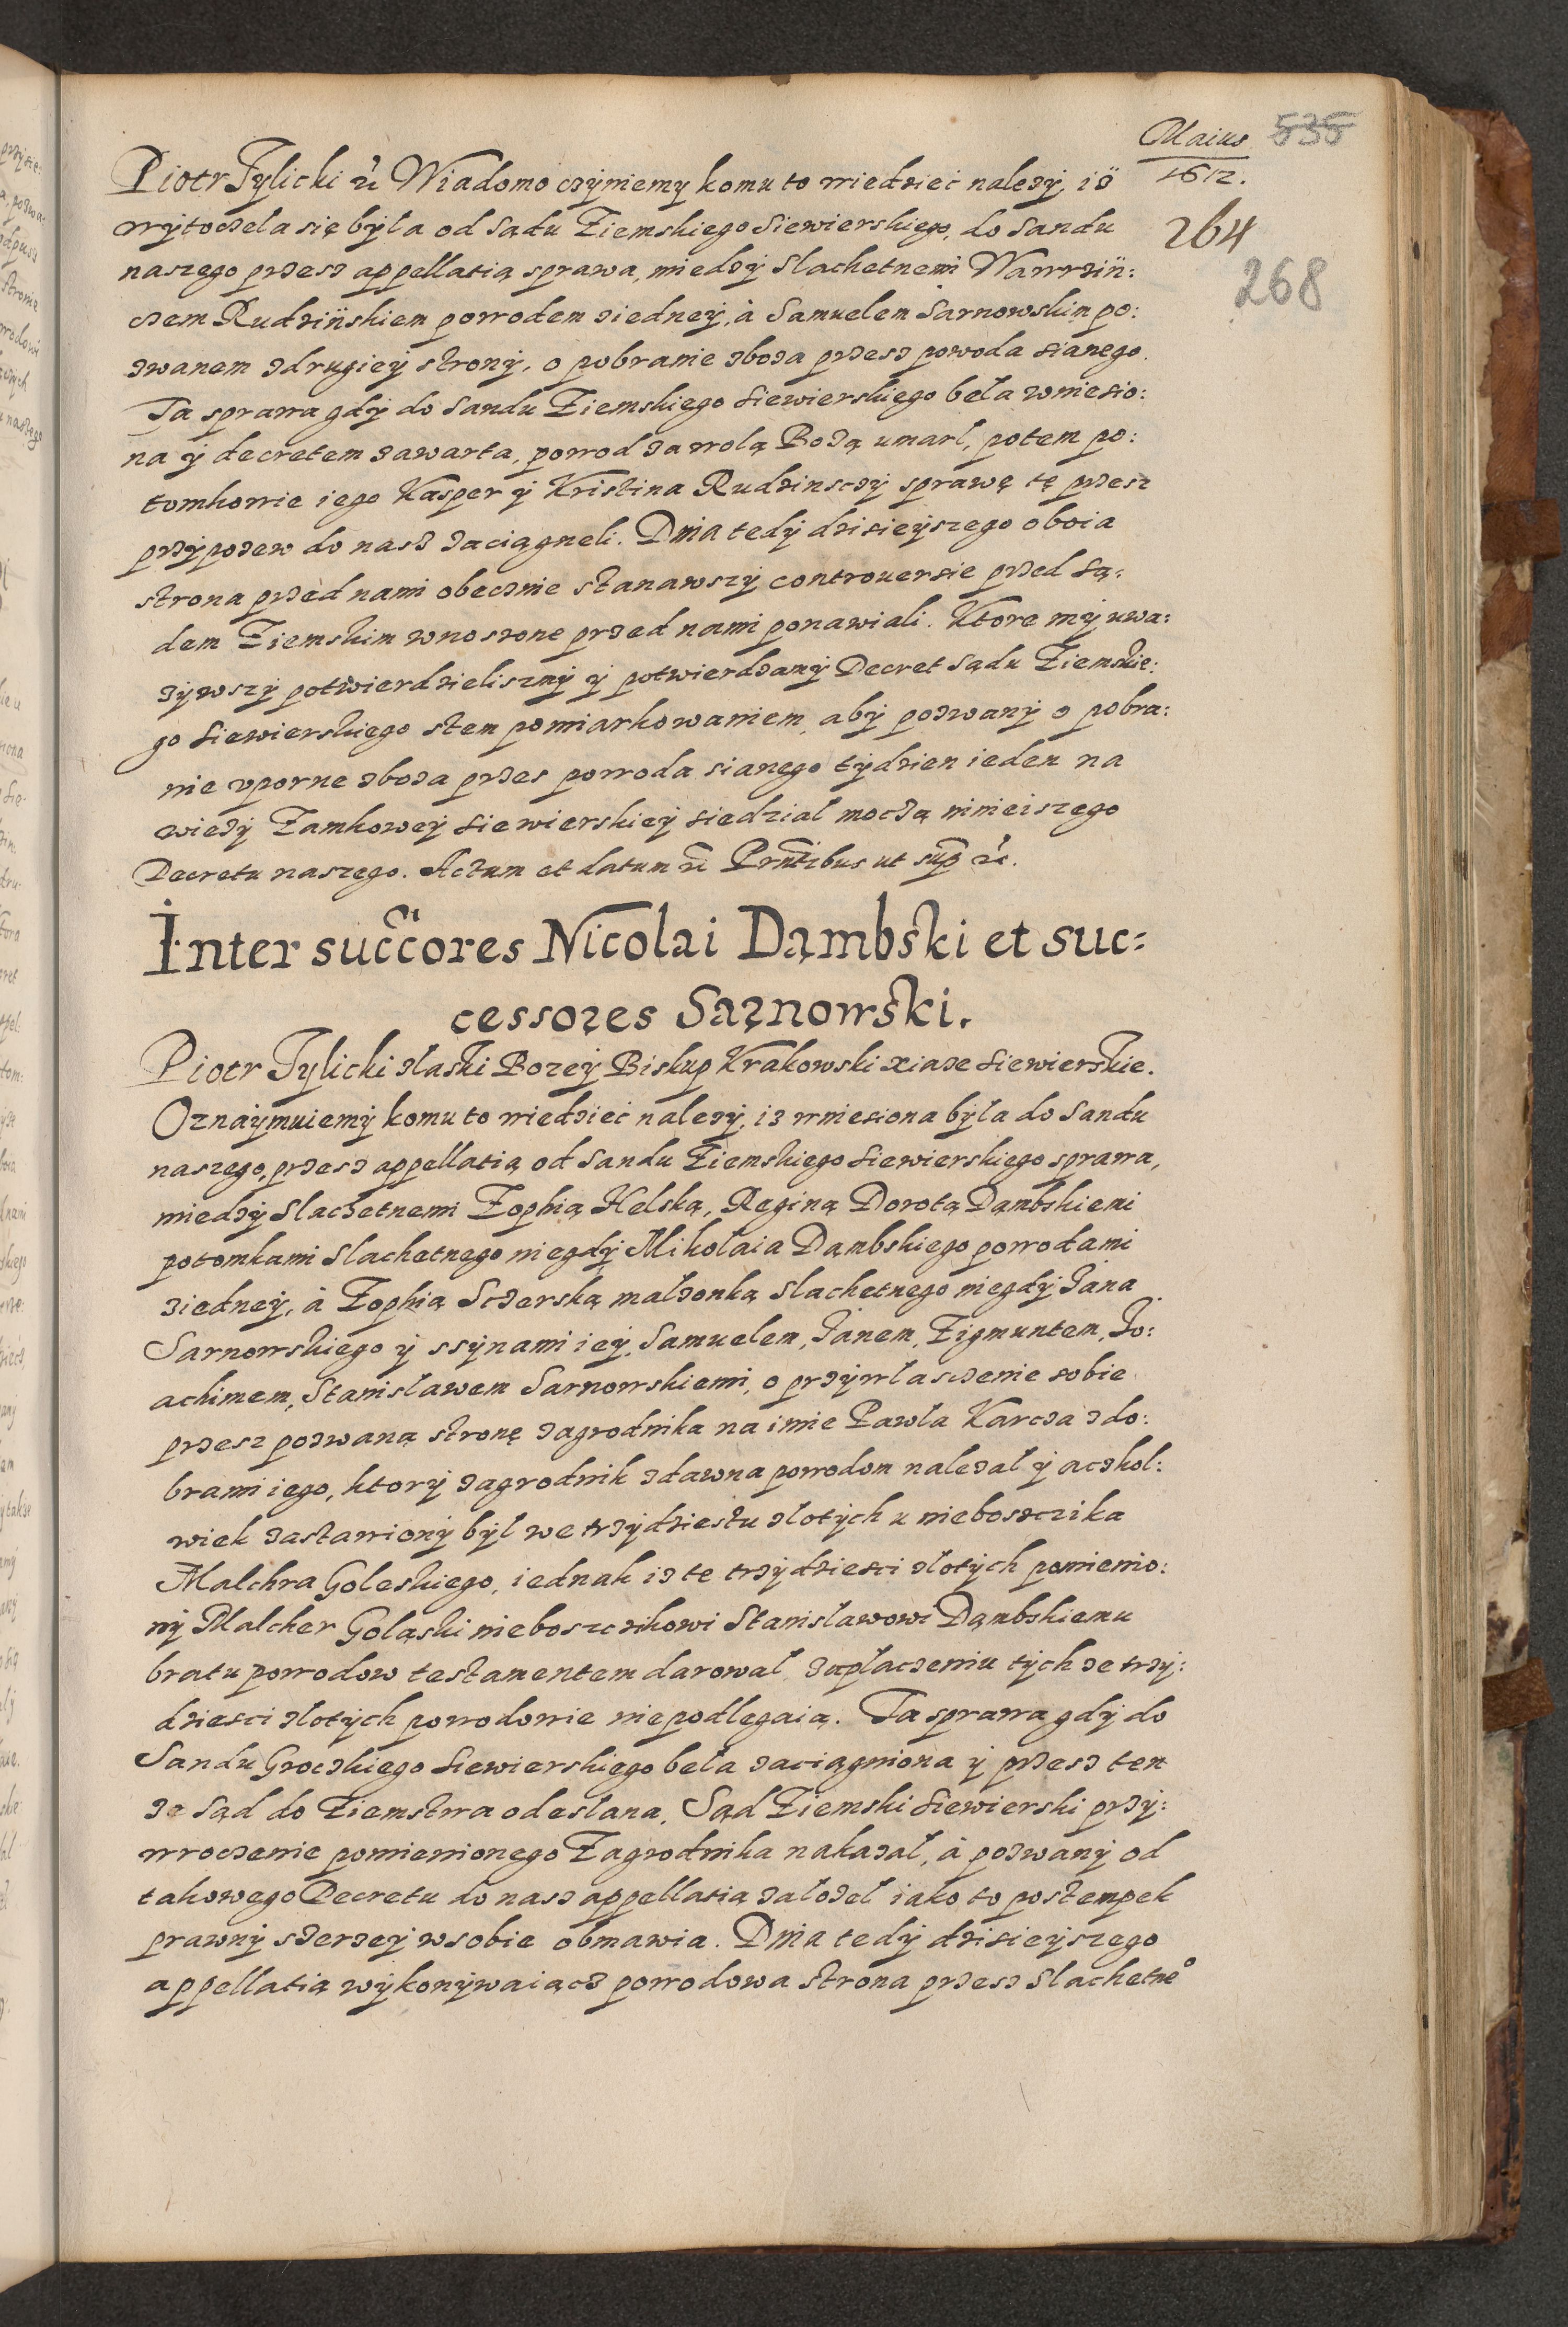 Maius 535
1612.
264
268
Piotr Tylicki etc Wiadomo czÿniemy komu to wiedzieć należÿ, iż
wÿtoczela się bÿla od Sądu Ziemskiego Siewierskiego, do Sandu
naszego przesz appellatią sprawa, miedzÿ Slachetnemi Wawrzin:
czem Rudzinskiem powodem ziedneÿ, à Samuelem Sarnowskim po:
zwanem zdrugieÿ stronÿ, o pobranie zboża przesz powoda sianego.
Ta sprawa gdÿ do Sandu Ziemskiego Siewierskiego bela wniesio:
na ÿ decretem zawarta, powod za wolą Bożą umarl, potem po:
tomkowie iego Kasper ÿ Kristina Rudzinsczÿ sprawę tę przesz
przÿpozew do nasz zaciągneli. Dnia tedÿ dzisieÿszego oboia
strona przed nami obecznie stanawszÿ controuersie przed Są:
dem Ziemskim wnoszone przed nami ponawiali. Ktore mÿ uwa:
żÿwszÿ potwierdzieliszmÿ ÿ potwierdzamÿ Decret Sądu Ziemskie:
go Siewierskiego stem pomiarkowaniem, abÿ pozwanÿ o pobra:
nie vporne zboża przes powoda sianego tÿdzien ieden na
wieżÿ Zamkoweÿ Siewierskieÿ siedzial moczą ninieiszego
Decretu naszego. Actum et datum etc Prntibus ut sup etc.
Inter succores Nicolai Dąmbski et suc=
cessores Sarnowski.
Piotr Tylicki zlaski Bozeÿ Biskup Krakowski xiaże Siewierskie.
Oznaÿmuiemÿ komu to wiedzieć należÿ, iż wniesiona bÿla do Sandu
naszego, przesz appellatią od Sandu Ziemskiego Siewierskiego sprawa,
miedzÿ Slachetnemi Zophią Helską, Reginą Dorotą Dąmbskiemi
potomkami Slachetnego niegdÿ Mikolaia Dambskiego powodami
ziedneÿ, à Zophią Sczerską malżonką Slachetnego niegdÿ Jana
Sarnowskiego ÿ ssÿnami ieÿ, Samuelem, Janem, Zigmuntem, Jo:
achimem, Stanislawem Sarnowskiemi, o przÿwlasczenie sobie
przesz pozwaną stronę zagrodnika na imie Pawla Karcza zdo:
brami iego, ktorÿ zagrodnik zdawna powodom należal ÿ aczkol:
wiek zastawionÿ bÿl we trzÿdziestu zlotÿch u nieboszczika
Malchra Goleskiego, iednak iż te trzÿdziesci zlotÿch pomienio:
nÿ Malcher Goląski nieboszczikowi Stanislawowi Dąmbskiemu
bratu powodow testamentem darowal, zaplaczeniu tÿch że trzÿ:
dziesci zlotÿch powodowie niepodlegaią. Ta sprawa gdÿ do
Sandu Grodzkiego Siewierskiego bela zaciągniona ÿ przesz ten
że Sąd do Ziemstwa odeslana. Sąd Ziemski Siewierski przÿ:
wroczenie pomienionego Zagrodnika nakazal, à pozwanÿ od
takowego Decretu do nasz appellatią zalożel iako to postempek
prawnÿ szerzeÿ wsobie obmawia. Dnia tedÿ dzisieÿszego
appellatią wÿkonÿwaiącz powodowa strona przesz Slachetne°